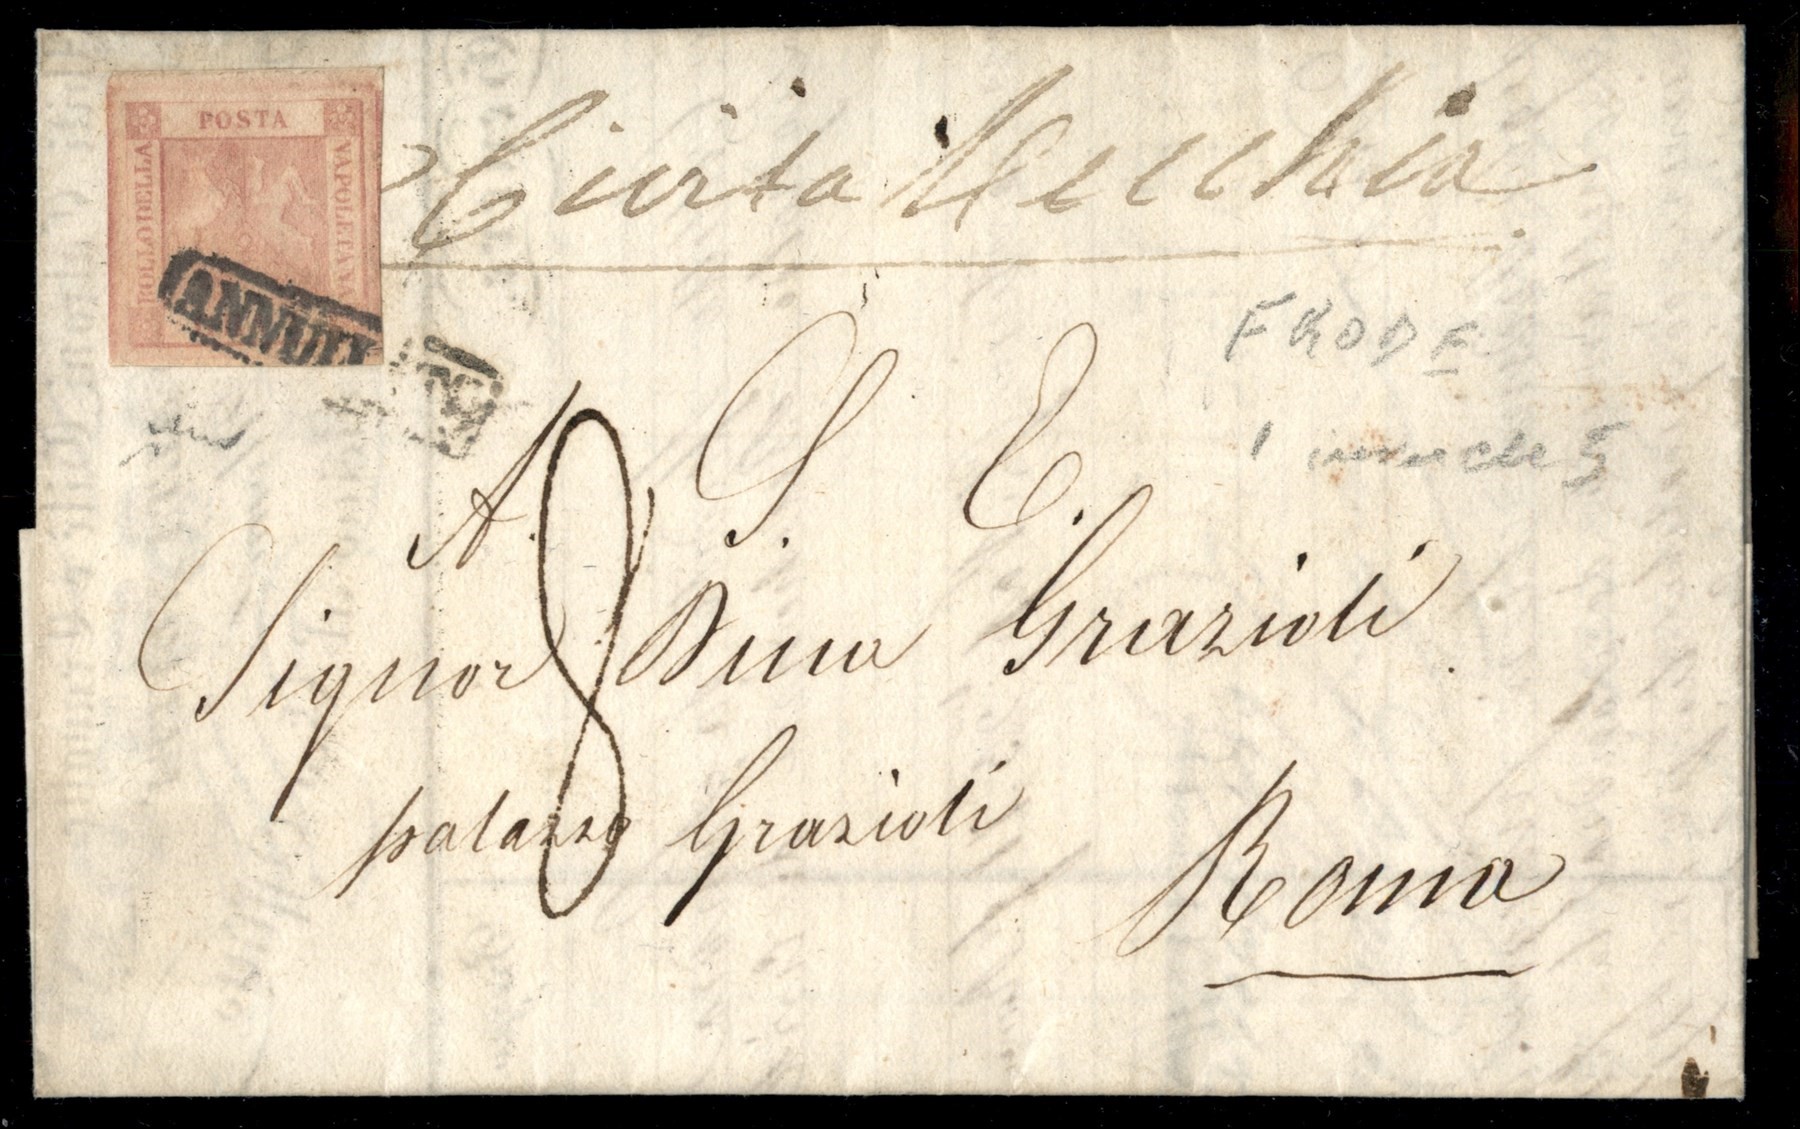 POSTA
BOLLO DELLA
NAPOLETANA
ANNULL
Civita Vecchia
FRODE
1 invece che 5
A. S. E.
8
Signor Duca Grazioli
palazzo Grazioli
Roma